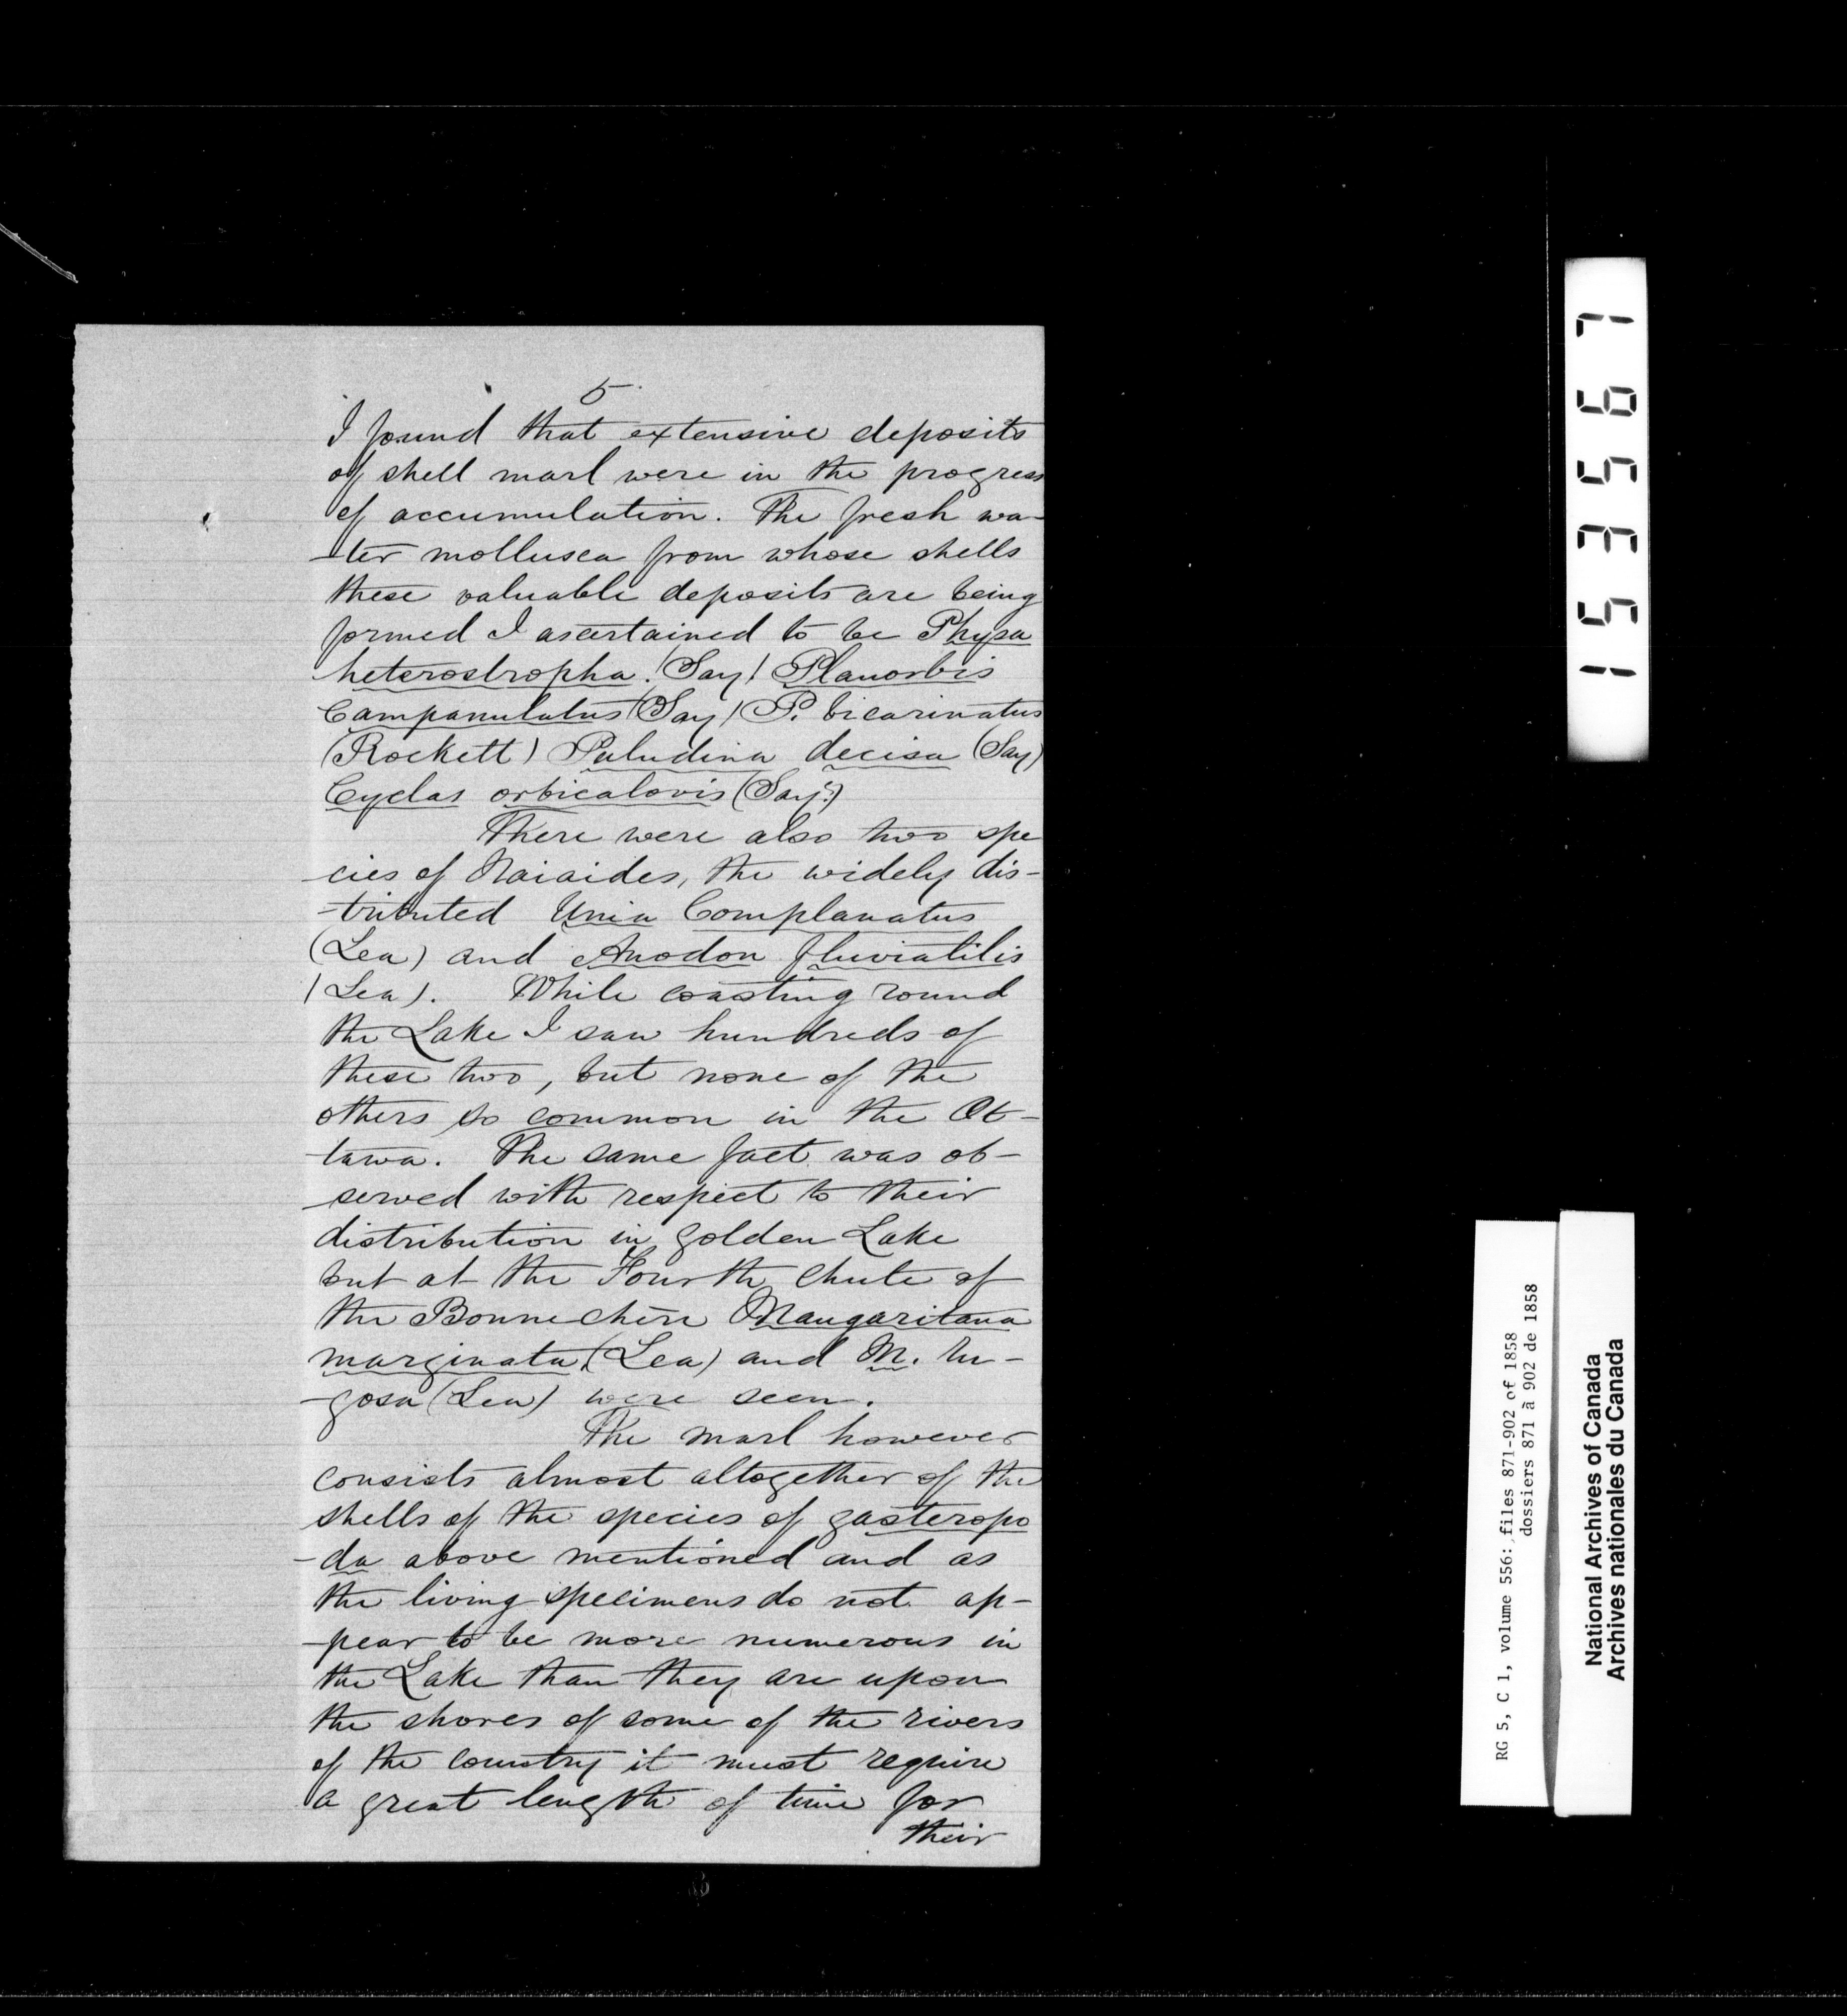 5.
I found that extensive deposits
of shell marl were in the progress
of accumulation. The fresh wa-
-ter mollusca from whose shells
these valuable deposits are being
formed I ascertained to be Physa
heterostropha (Say) Planorbis
Campanulatus (Say) P. bicarinatus
(Rockett) Paludina decisa (Say)
Cyclas orbicalovis (Say?)
There were also two spe
cies of Naiaides, the widely dis-
-tributed Unia Complanatus
(Lea) and Anodon fluviatilis
(Lea). While coasting round
the Lake I saw hundreds of
these two, but none of the
others so common in the Ot-
-tawa. The same fact was ob-
-served with respect to their
distribution in golden Lake
but at the Fourth Chute of
the Bonnechère Maugaritana
marginata (Lea) and M. ru-
-gosa (Lea) were seen.
The marl however
consists almost altogether of the
shells of the species of gasteropo
-da above mentioned and as
the living specimens do not ap-
-pear to be more numerous in
the Lake than they are upon
the shores of some of the rivers
of the country it must require
a great length of time for
their
153567
RG 5, C 1, volume 556: files 871-902 of 1858
dossiers 871 à 902 de 1858
National Archives of Canada
Archives nationales du Canada